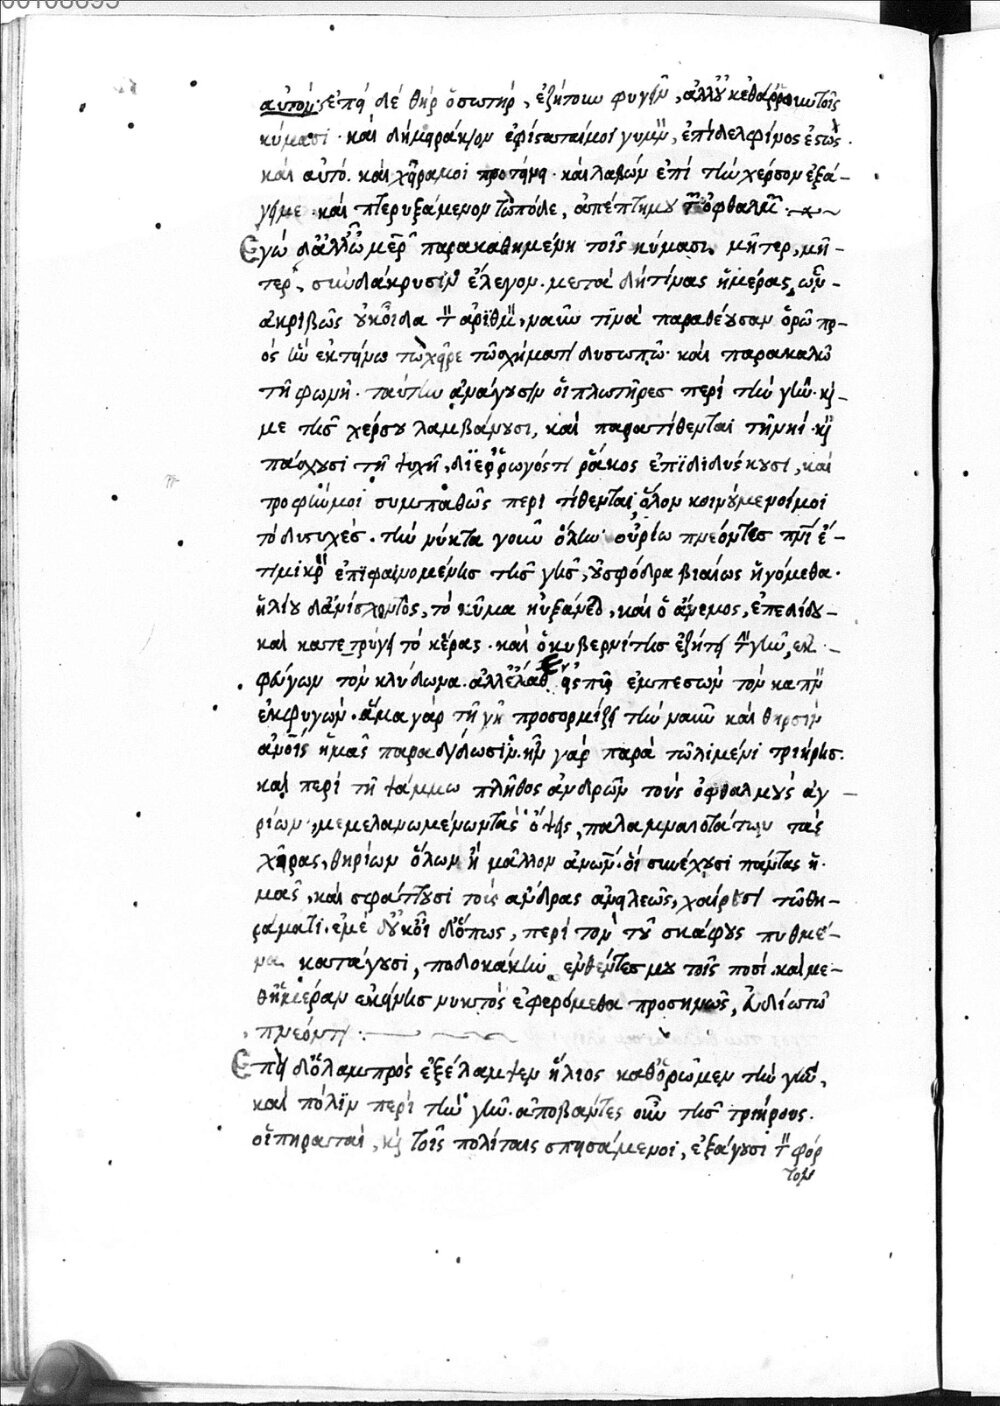 αὐτόν· ἐπεὶ δὲ θὴρ ὁ σωτήρ, ἐζήτουν φυγεῖν, ἀλλ' οὐκ ἐθάρρουν τοῖς
κύμασι· καὶ δὴ μειράκιον ἐφίσταταί μοι γυμνὸν, ἐπὶ δελφῖνος ἑστώς
καὶ αὐτό. καὶ χεῖρά μοι προτείνει· καὶ λαβὼν ἐπὶ τὴν χέρσον ἐξά-
γει με· καὶ πτερυξάμενον τὼ πόδε, ἀπέπτη μου τῶν ὀφθαλμῶν·
Ἐγὼ δ' ἀλλ' παρακαθημένη τοῖς κύμασι, μῆτερ, μῆ-
τερ, σὺν δάκρυσιν ἔλεγον· μετὰ δή τινας ἡμέρας, ὧν
ἀκριβῶς οὐκ οἶδα τὸν ἀριθμὸν, ναῦν τινὰ παραθέουσαν ὁρῶ πρ-
ὸς ἣν ἐκτείνω τὼ χεῖρε τῷ σχήματι δυσωπῶ· καὶ παρακαλῶ
τῇ φωνῇ· ταύτην ἀνάγουσιν οἱ πλωτῆρες περὶ τὴν γῆν· κἀ-
μὲ τῆς χέρσου λαμβάνουσι, καὶ παρατίθενται τῇ νηὶ· καὶ
πάσχουσι τῇ ψυχῇ, διερρωγός τι ῥάκος ἐπιδιδύσκουσι, καὶ
τροφὴν μοι συμπαθῶς περιτίθενται, ὅλον κοινούμενοί μοι
τὸ δυστυχές. τὴν νύκτα γοῦν ὅλην οὐρίῳ πνέοντες πνεύματι ἔ-
τι μικρὸν ἐπιφαινομένης τῆς γῆς, οὐ σφόδρα βιαίως ἠγόμεθα·
ἡλίου δ' ἀνίσχοντος, τὸ κῦμα ηὐξάνετο, καὶ ὁ ἄνεμος, ἐπεδίδου
καὶ κατετρύγει τὸ κέρας· καὶ ὁ κυβερνήτης ἐζήτει τὴν γῆν, ἐκ-
φεύγων τὸν κλύδωνα· ἀλλ' ἔλαθεν εἰς πῦρ ἐμπεσὼν τὸν καπνὸν
ἐκφυγών· ἅμα γὰρ τῇ γῇ προσορμίζει τὴν ναῦν καὶ θηρσὶν
ἀνοῖς ἡμᾶς παραδίδωσιν· ἦν γὰρ παρὰ τῷ λιμένι τριήρης.
καὶ περὶ τῇ ψάμμῳ πλῆθος ἀνδρῶν τοὺς ὀφθαλμοὺς ἀγ-
ρίων, μεμελανωμένων τὰς ὄψεις, παλαμναιοτάτων τὰς
χεῖρας, θηρίων ὅλων ἢ μᾶλλον ἀνων· οἳ συνέχουσι πάντας ἡ-
μᾶς, καὶ σφάττουσι τοὺς ἄνδρας ἀνηλεῶς, χαίρουσι τῷ θη-
ράματι. ἐμὲ δ' οὐκ οἶδ' ὅπως, περὶ τὸν τοῦ σκάφους πυθμέ-
να κατάγουσι, ποδοκάκην ἐνθέντες μου τοῖς ποσί. καὶ με-
θ' ἡμέραν ἐκείνης νυκτὸς ἐφερόμεθα προσηνῶς, εὐδίῳ τῷ
πνέοντι:
Ἐπεὶ δ' ὁ λαμπρὸς ἐξέλαμψεν ἥλιος καθορῶμεν τὴν γῆν,
καὶ πόλιν περὶ τὴν γῆν· ἀποβάντες οὖν τῆς τριήρους.
οἱ πειραταὶ, καὶ τοῖς πολίταις σπεισάμενοι, ἐξάγουσι τὸν φόρ
τον